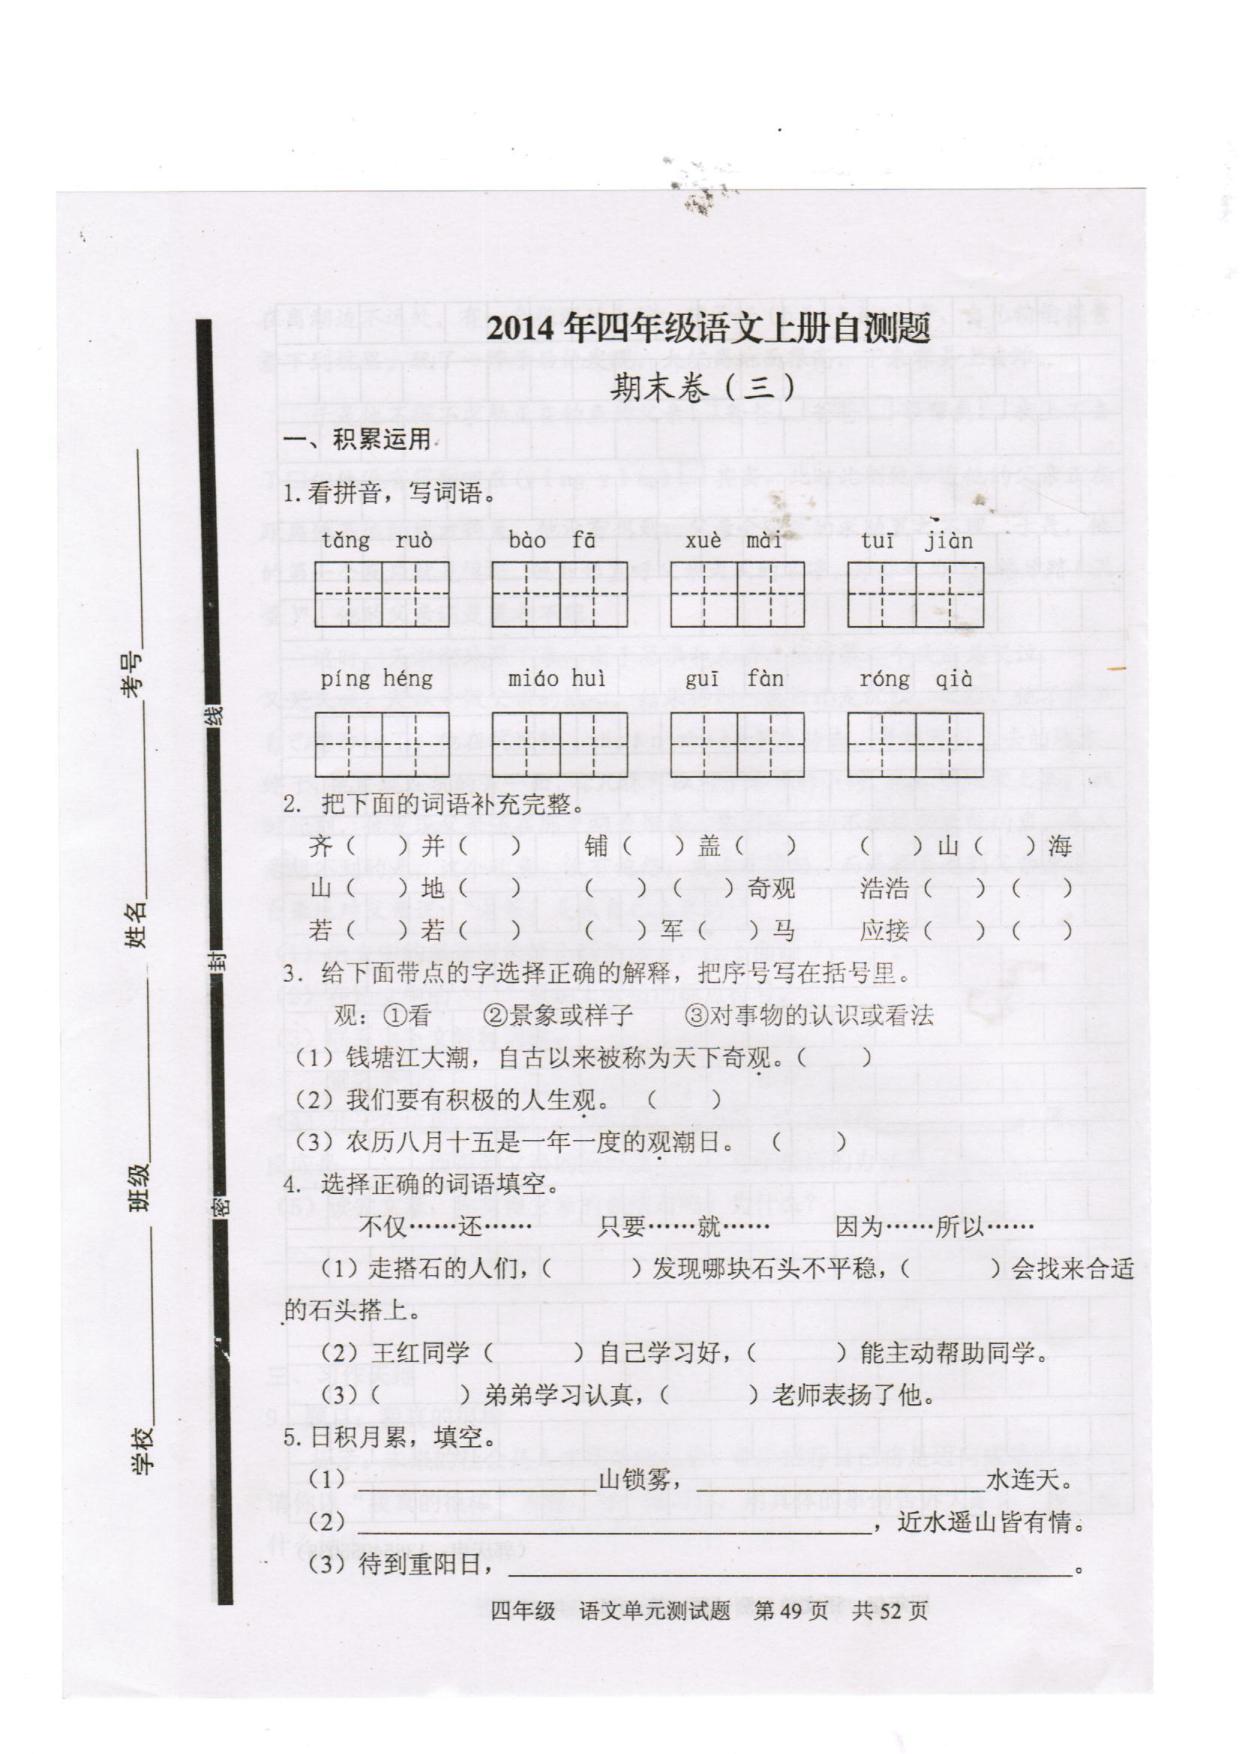 2014年四年级语文上册自测题
期末卷（三）
一、积累运用
1.看拼音，写词语。
tǎng ruò bào fā xuè mài tuī jiàn
píng héng miáo huì guī fàn róng qià
2. 把下面的词语补充完整。
齐（ ）并（ ） 铺（ ）盖（ ） （ ）山（ ）海
山（ ）地（ ） （ ）（ ）奇观 浩浩（ ）（ ）
若（ ）若（ ） （ ）军（ ）马 应接（ ）（ ）
3. 给下面带点的字选择正确的解释，把序号写在括号里。
观：①看 ②景象或样子 ③对事物的认识或看法
（1）钱塘江大潮，自古以来被称为天下奇观。（ ）
（2）我们要有积极的人生观。（ ）
（3）农历八月十五是一年一度的观潮日。（ ）
4. 选择正确的词语填空。
不仅……还…… 只要……就…… 因为……所以……
（1）走搭石的人们，（ ）发现哪块石头不平稳，（ ）会找来合适
的石头搭上。
（2）王红同学（ ）自己学习好，（ ）能主动帮助同学。
（3）（ ）弟弟学习认真，（ ）老师表扬了他。
5.日积月累，填空。
（1）__________山锁雾，__________水连天。
（2）__________，近水遥山皆有情。
（3）待到重阳日，__________。
四年级 语文单元测试题 第49页 共52页
学校______ 班级______ 姓名______ 考号______
密 封 线